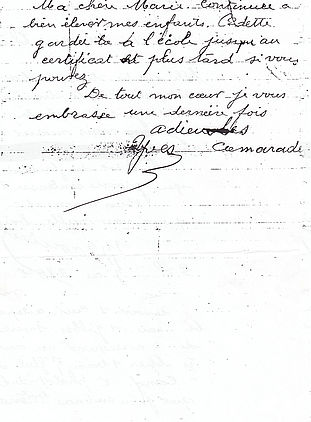 Ma chère Marie continue a
bien élever mes enfants. Cadette
garder la à l'école jusqu'au
certificat et plus tard si vous
pouvez
De tout mon cœur je vous
embrasse une dernière fois
adieu les
Camarade